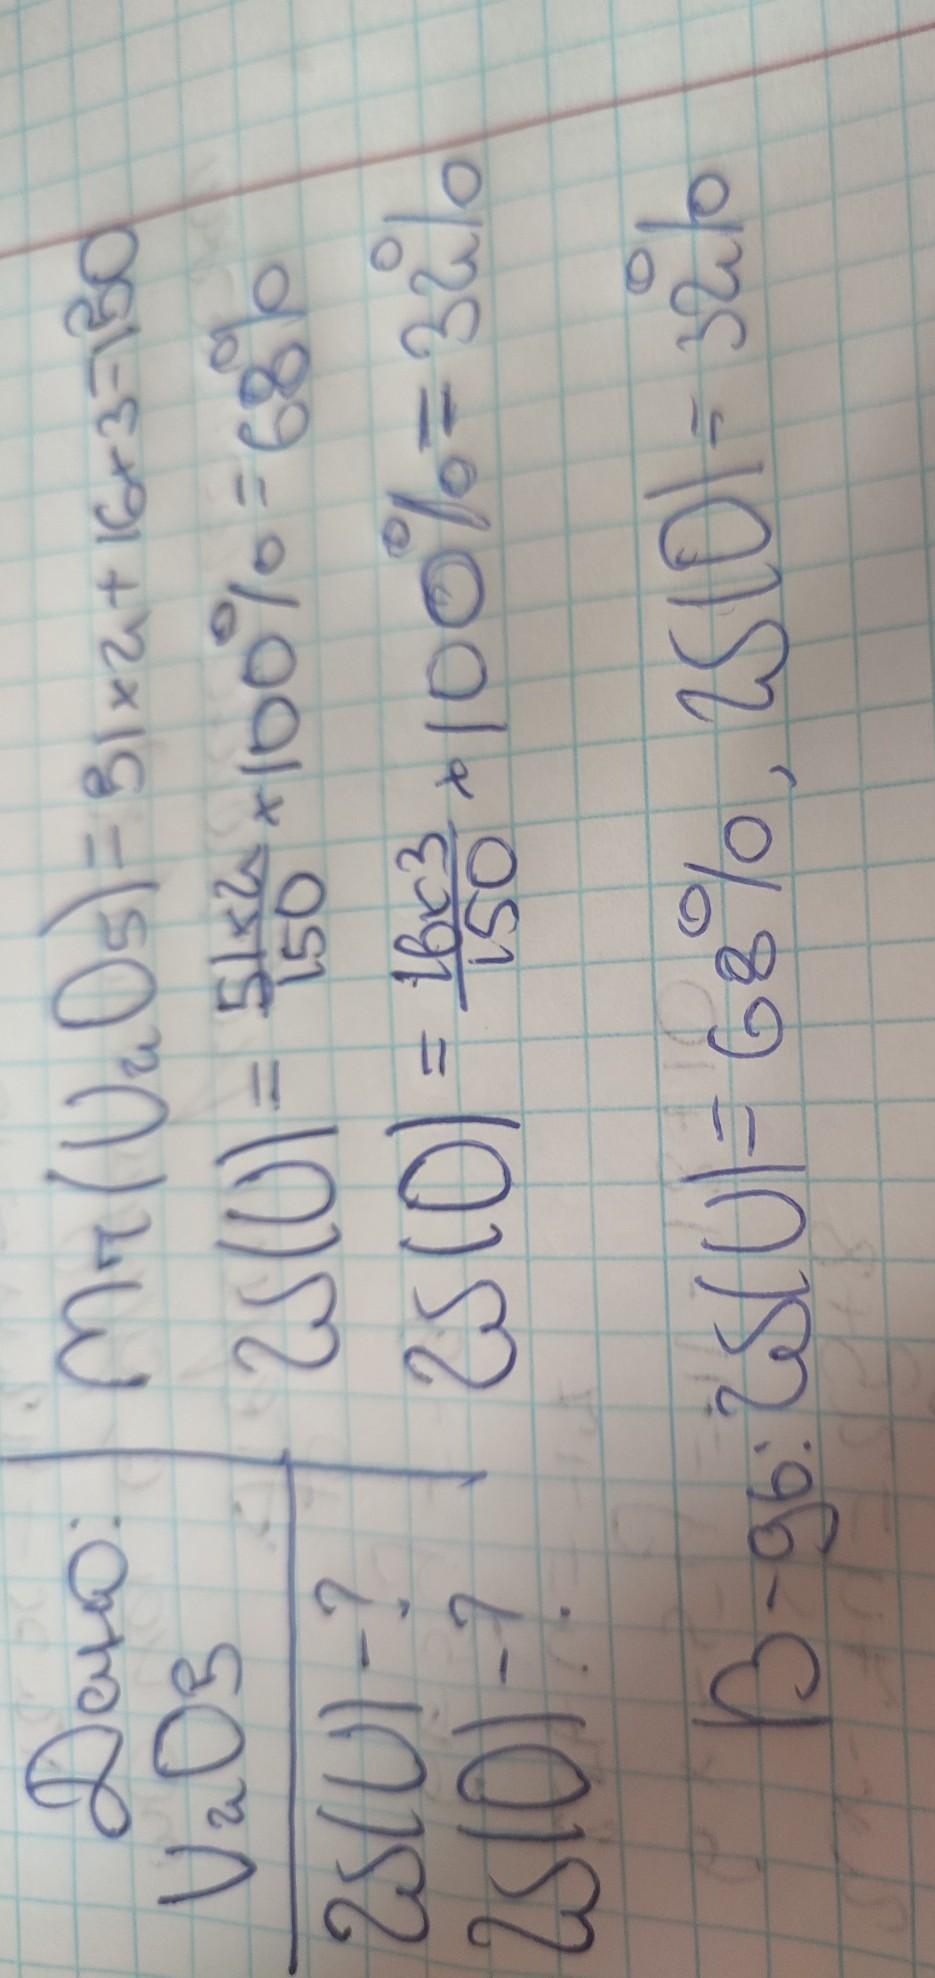 Дано:
V₂O3
W(V)-?
W(O)-?
Mr(V₂O5)=51×2+16×3=150
W(V)=51×2/150×100%=68%
W(O)=16×3/150×100%=32%
В-дь: W(V)=68%, W(O)=32%